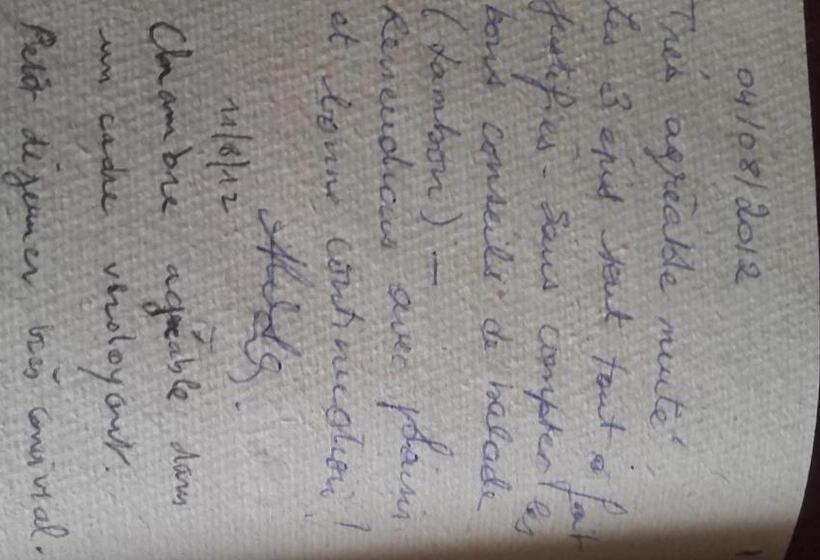 04/08/2012
Très agréable nuité,
Les 3 épis sont tout à fait
justifiés. Sans compter les
bons conseils de balade
(Lambon) —
Reviendrons avec plaisir
et bonne continuation !
11/8/12
Chambre agréable dans
un cadre verdoyant.
Petit déjeuner très convivial.